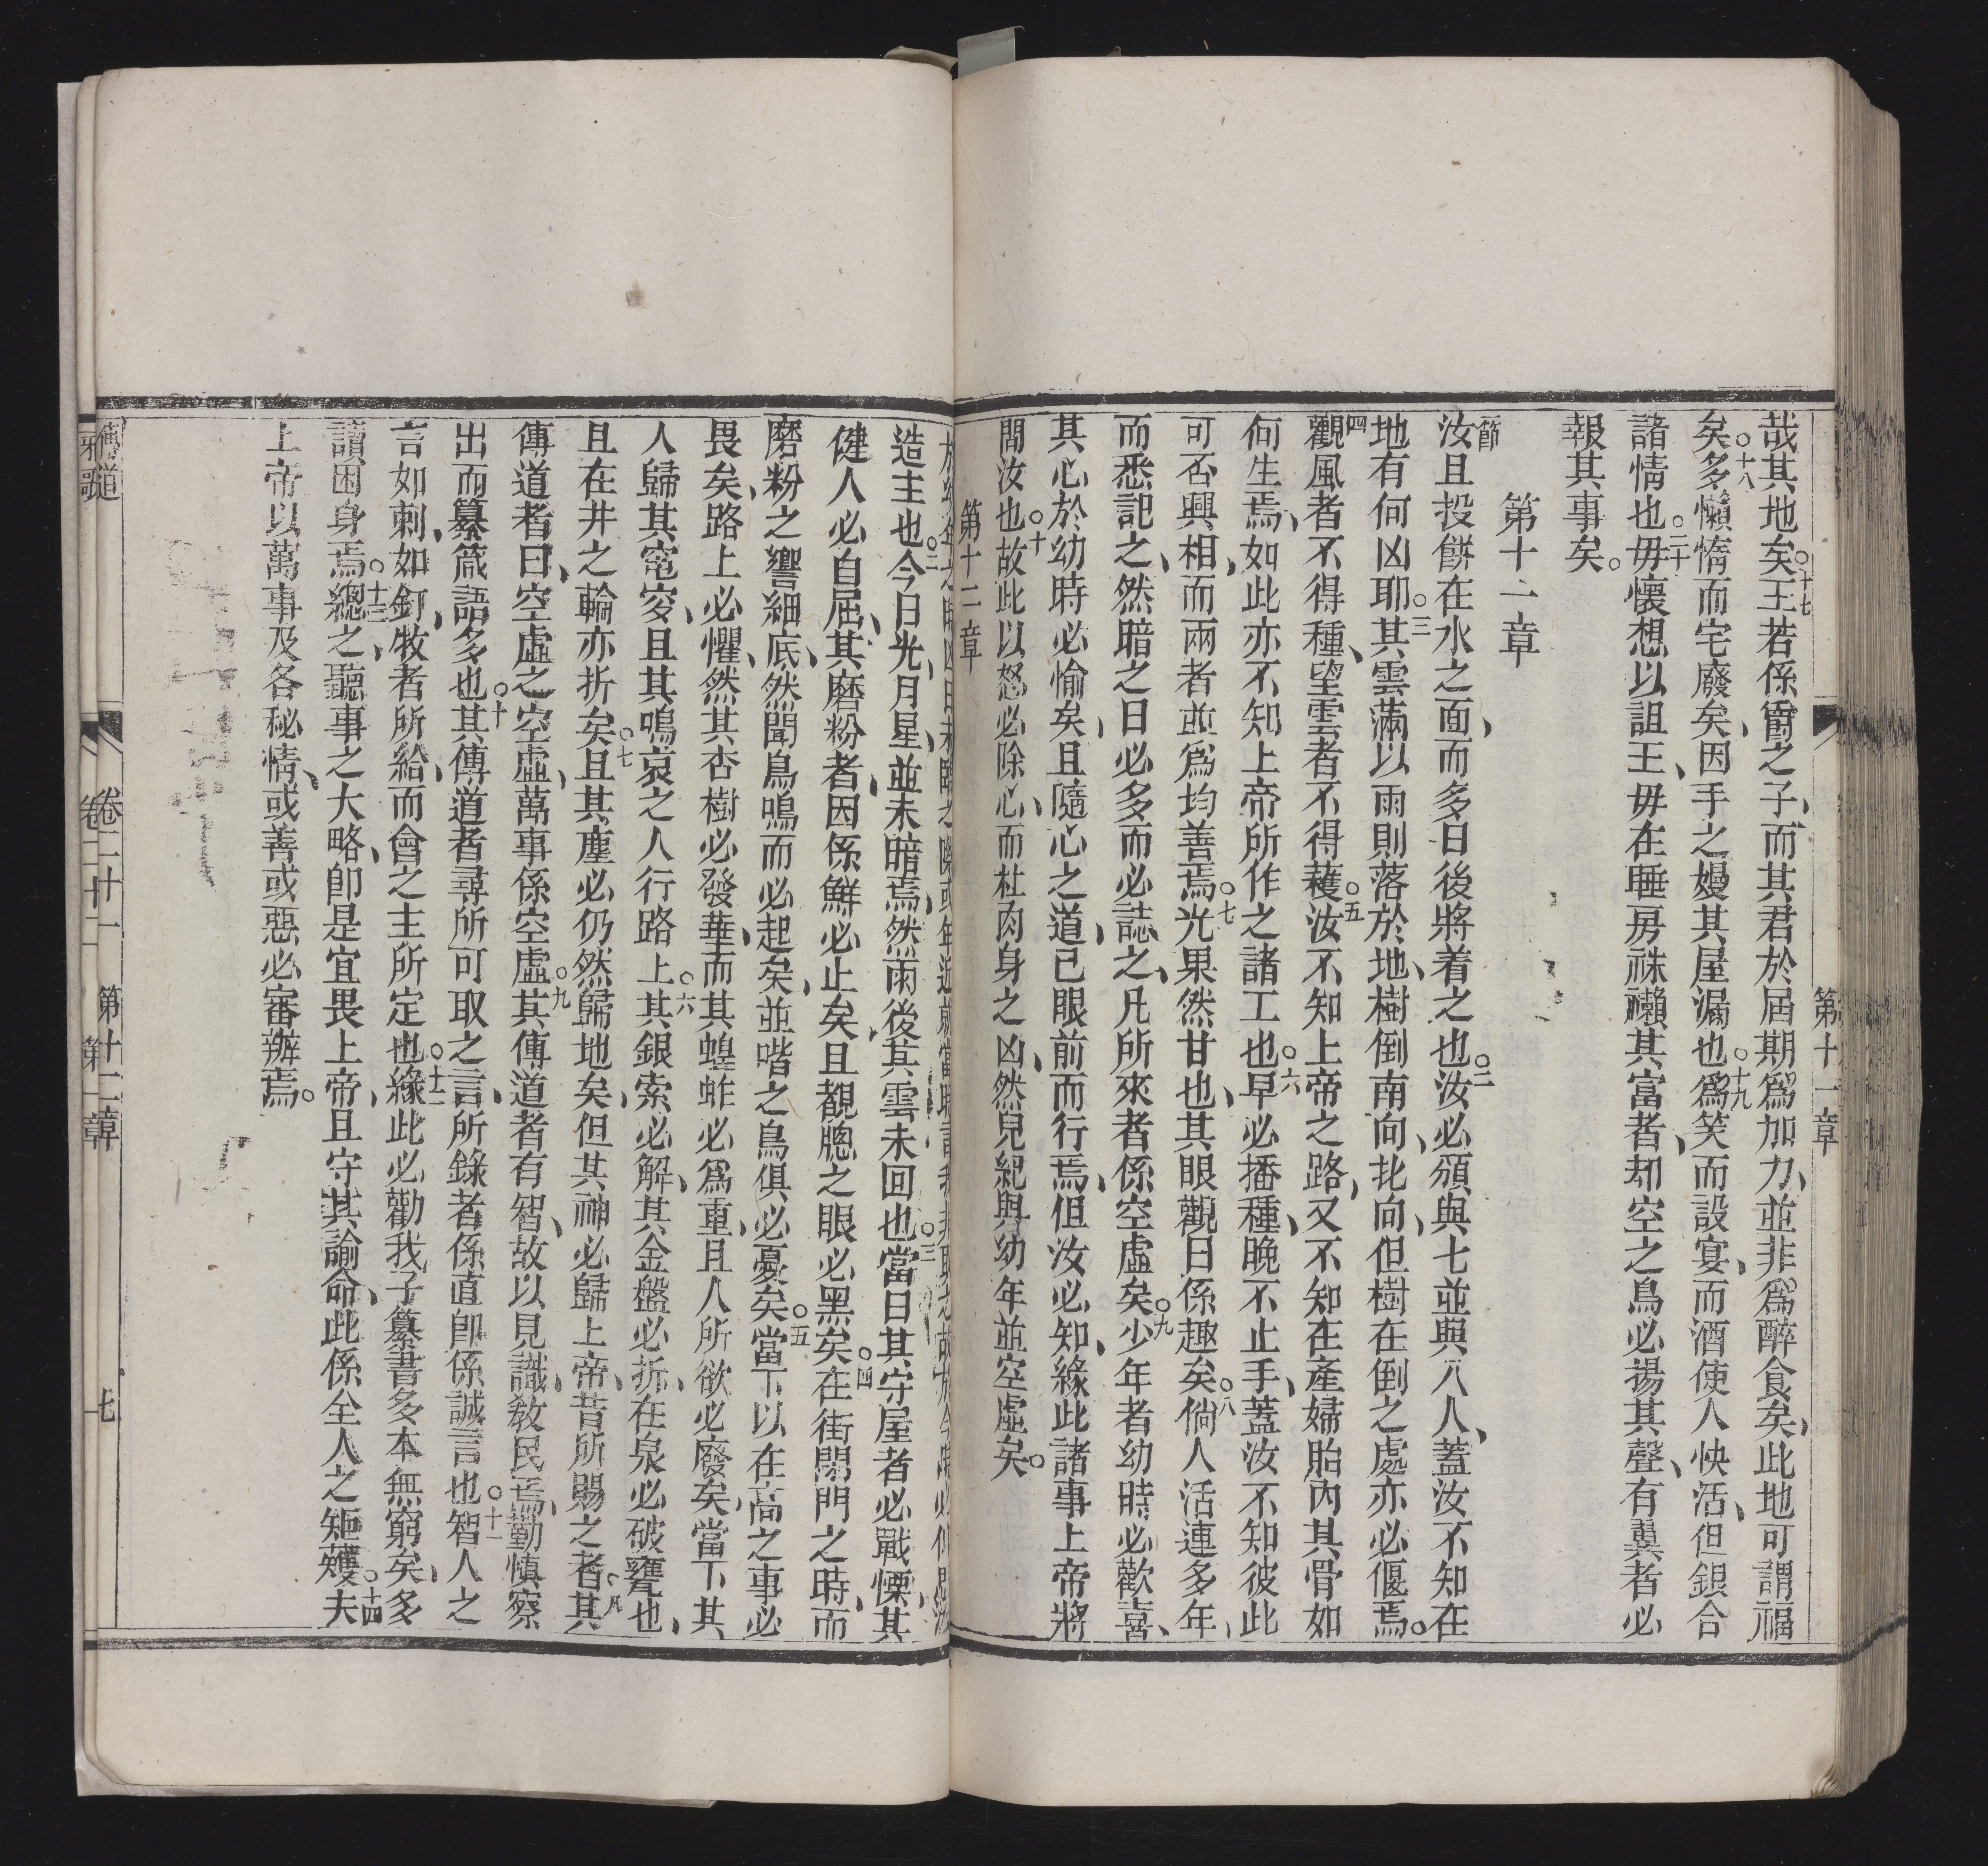 第十一章
哉其地矣○十七王若係爵之子、而其君於屆期爲加力、並非爲醉食矣、此地可謂福
矣○十八多懶惰而宅廢矣、因手之嫚其屋漏也○十九爲笑而設宴、而酒使人快活、但銀合
諸情也○二十毋懷想以詛王、毋在睡房袾襰其富者、却空之鳥必揚其聲、有翼者必
報其事矣。
第十二章
節
汝且投餅在水之面、而多日後將着之也○二汝必頒與七並與八人、蓋汝不知在
地有何凶耶○三其雲滿以雨則落於地、樹倒南向、北向、但樹在倒之處亦必偃焉。
四觀風者不得種、望雲者不得穫○五汝不知上帝之路、又不知在產婦胎內其骨如
何生焉、如此亦不知上帝所作之諸工也○六早必播種、晚不止手、蓋汝不知彼此
可否興相、而兩者並爲均善焉○七光果然甘也、其眼觀日係趣矣○八倘人活連多年、
而悉記之、然暗之日必多而必誌之、凡所來者係空虛矣○九少年者幼時必歡喜、
其心於幼時必愉矣、且隨心之道、己眼前而行焉、但汝必知、緣此諸事上帝將
問汝也○十故此以怒必除心、而杜肉身之凶、然兒紀與幼年並空虛矣。
第十二章
造主也○二今日光、月星、並未暗焉、然雨後其雲未回也○三當日其守屋者必戰慄、其
健人必自屈、其磨粉者、因係鮮必止矣、且覩牕之眼必黑矣○四在街閉門之時、而
磨粉之響細底、然聞鳥鳴而必起矣、並喈之鳥俱必憂矣○五當下以在高之事必
畏矣、路上必懼、然其杏樹必發華、而其蝗蚱必爲重、且人所欲必廢矣、當下其
人歸其窀穸、且其鳴哀之人行路上○六其銀索必解、其金盤必折、在泉必破甕也、
且在井之輪亦折矣○七且其塵必仍然歸地矣、但其神必歸上帝、昔所賜之者○八其
傳道者曰、空虛之空虛、萬事係空虛○九其傳道者有智、故以見識、敎民焉、勤慎察
出而纂箴語多也○十其傳道者尋所可取之言、所錄者係直卽係誠言也○十一智人之
言如刺、如釘、牧者所給、而會之主所定也○十二緣此必勸我子、纂書多本無窮矣、多
讀困身焉○十三總之、聽事之大略、卽是宜畏上帝、且守其諭命、此係全人之矩矱○十四夫
上帝以萬事及各秘情、或善或惡必審辦焉。
傳道 卷二十一 第十二章 七
雅歌 卷二十二 第一章 一